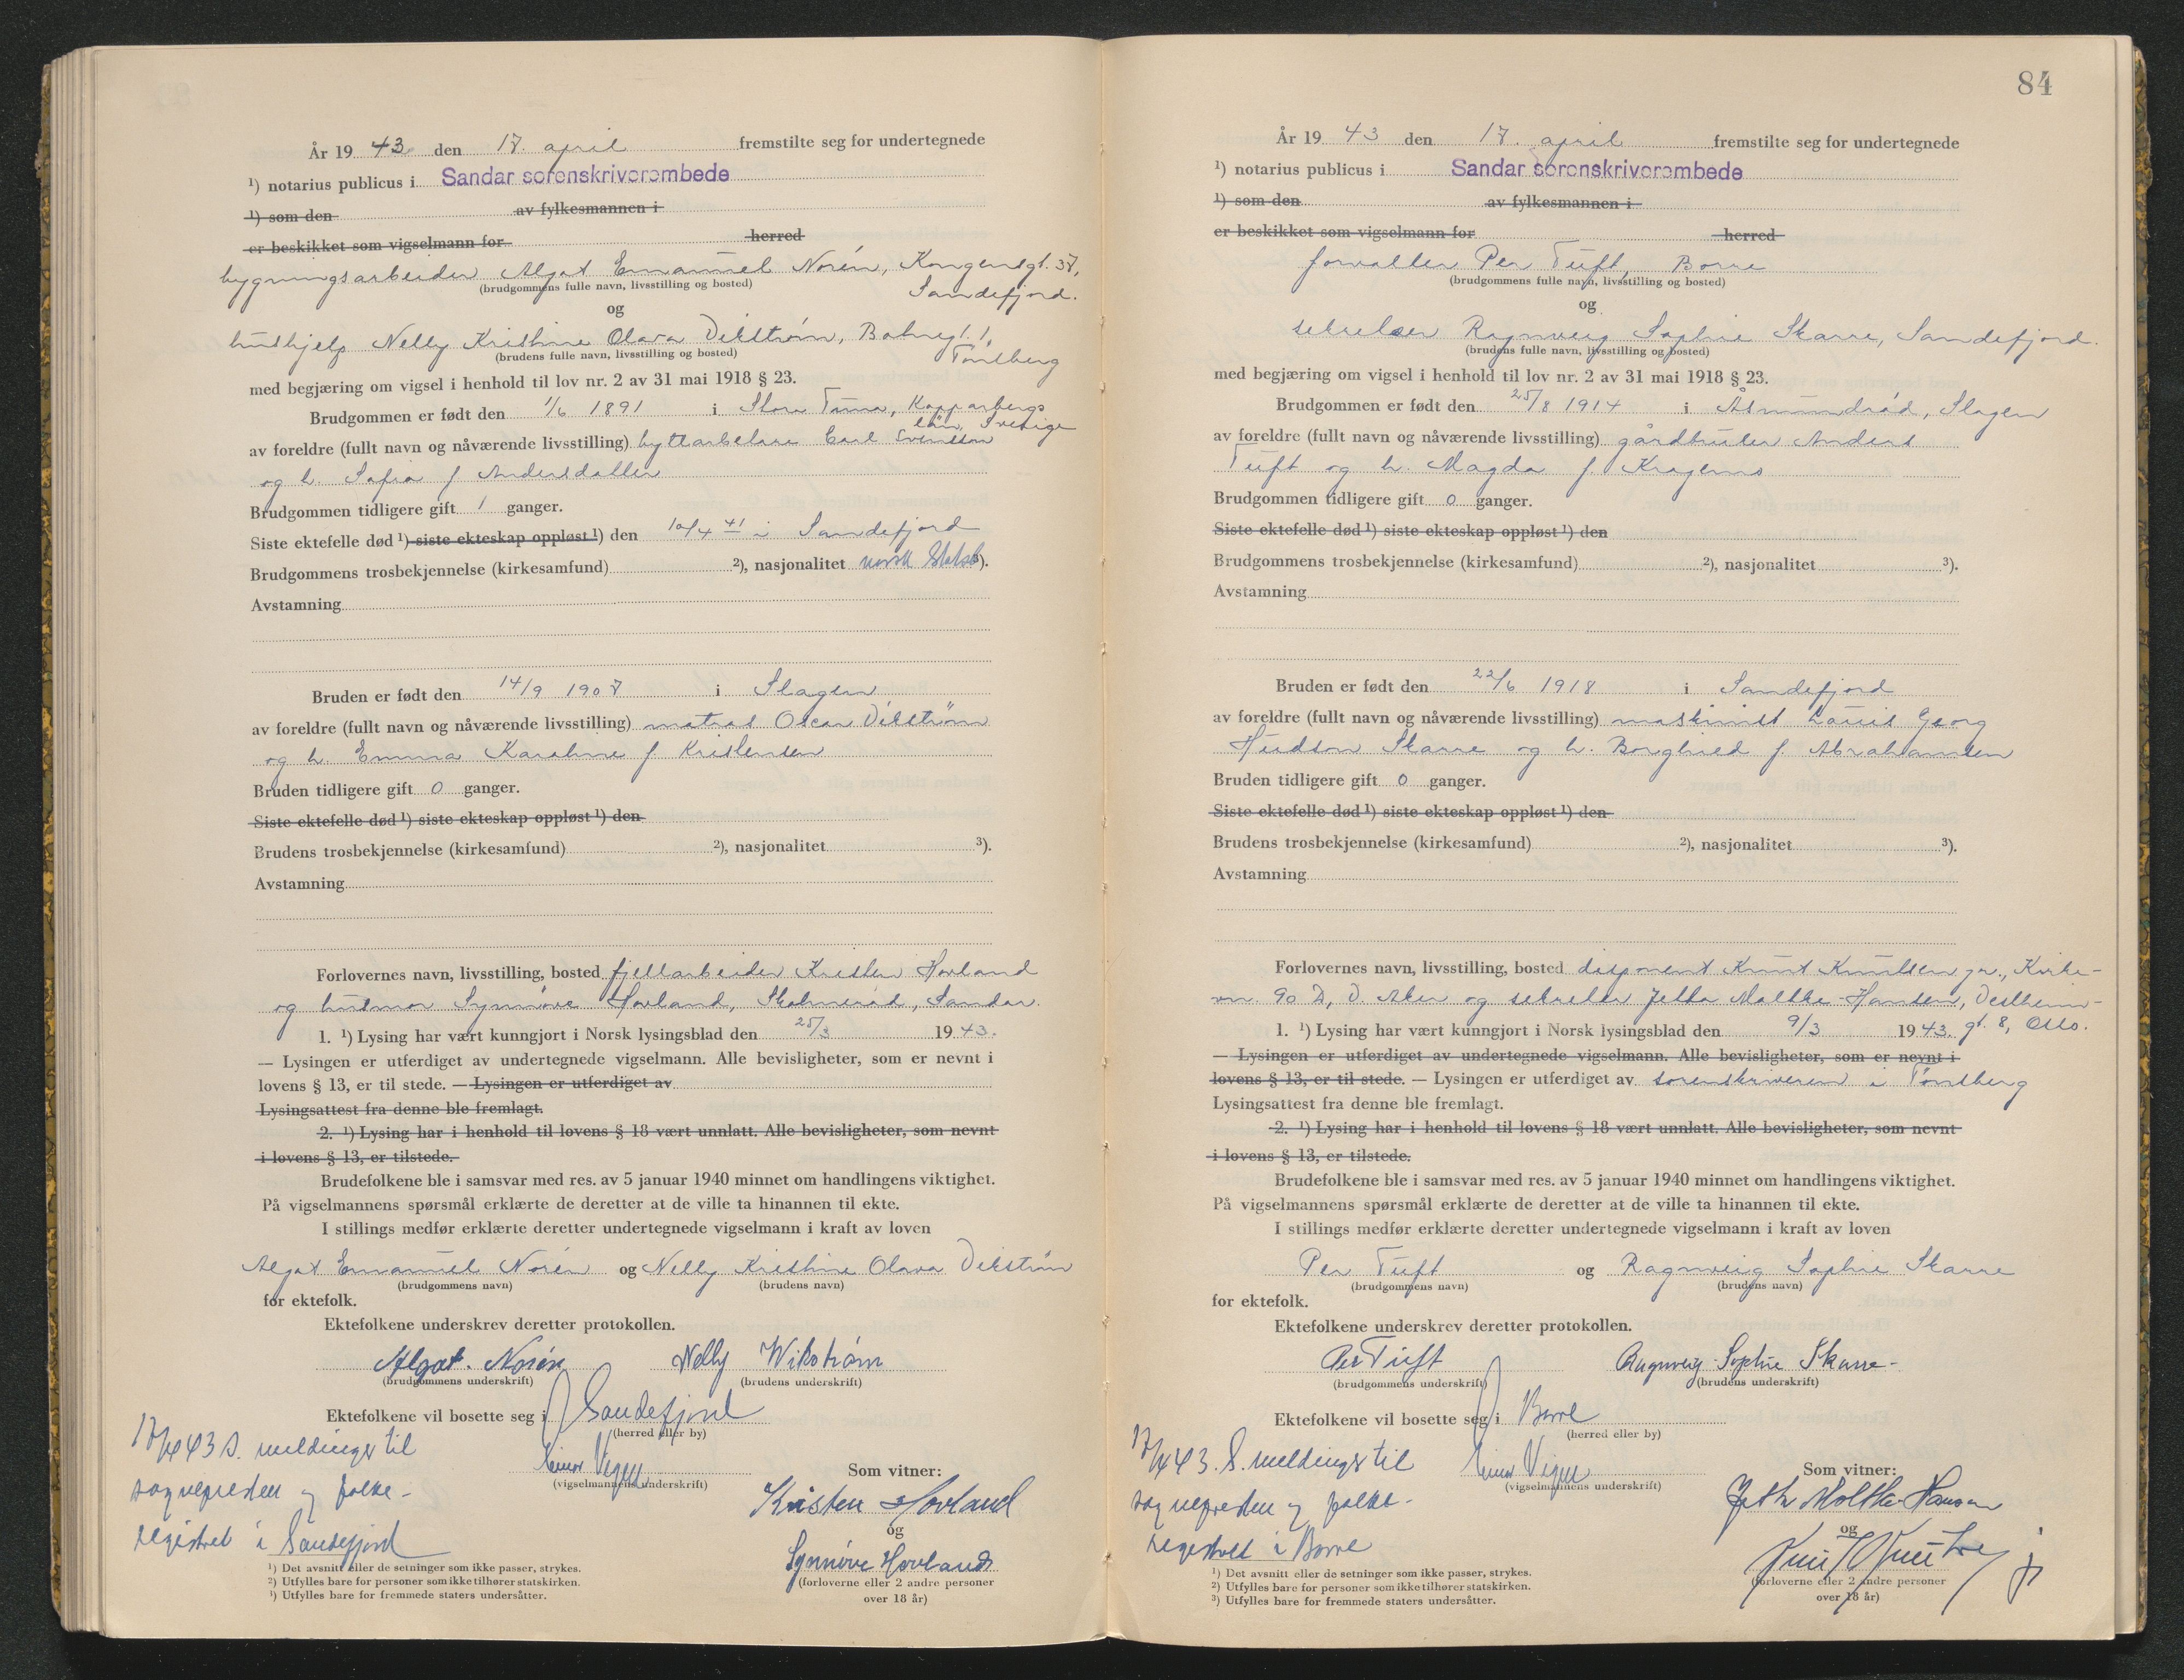 År 19 43 den 17. april fremstilte seg for undertegnede
¹) notarius publicus i Sandar sorenskriverembede
¹) som den av fylkesmannen i
er beskikket som vigselmann for herred
bygningsarbeider Algot Emanuel Norén, Kongensgt. 37,
(brudgommens fulle navn, livsstilling og bosted)
Sandefjord.
og
hushjelp Nelly Kristine Olava Vikstrøm,
(brudens fulle navn, livsstilling og bosted)
Tønsberg
med begjæring om vigsel i henhold til lov nr. 2 av 31 mai 1918 § 23.
Brudgommen er født den 1/6 1891 i Stora Tuna, Kopparbergs
län, Sverige
av foreldre (fullt navn og nåværende livsstilling) hyttarbetare Carl Svensson
og h. Sofia f Andersdotter
Brudgommen tidligere gift 1 ganger.
Siste ektefelle død ¹) siste ekteskap oppløst ¹) den 10/4 41 i Sandefjord
Brudgommens trosbekjennelse (kirkesamfund) ²), nasjonalitet norsk Statsb ³).
Avstamning
Bruden er født den 14/9 1907 i Slagen
av foreldre (fullt navn og nåværende livsstilling) matros Oscar Vikstrøm
og h. Emma Karoline f Kristensen
Bruden tidligere gift 0 ganger.
Siste ektefelle død ¹) siste ekteskap oppløst ¹) den
Brudens trosbekjennelse (kirkesamfund) ²), nasjonalitet ³).
Avstamning
Forlovernes navn, livsstilling, bosted fjellarbeider Kristen Hovland
og husmor Synnøve Hovland, Sandar.
1. ¹) Lysing har vært kunngjort i Norsk lysingsblad den 25/3 1943.
— Lysingen er utferdiget av undertegnede vigselmann. Alle bevisligheter, som er nevnt i
lovens § 13, er til stede. — Lysingen er utferdiget av
Lysingsattest fra denne ble fremlagt.
2. ¹) Lysing har i henhold til lovens § 18 vært unnlatt. Alle bevisligheter, som nevnt
i lovens § 13, er tilstede.
Brudefolkene ble i samsvar med res. av 5 januar 1940 minnet om handlingens viktighet.
På vigselmannens spørsmål erklærte de deretter at de ville ta hinannen til ekte.
I stillings medfør erklærte deretter undertegnede vigselmann i kraft av loven
Algot Emanuel Norén og Nelly Kristine Olava Vikstrøm
(brudgommens navn) (brudens navn)
for ektefolk.
Ektefolkene underskrev deretter protokollen.
Algot. Norén Nelly Wikstrøm
(brudgommens underskrift) (brudens underskrift)
Ektefolkene vil bosette seg i Sandefjord
(herred eller by)
17/4 43 S. meldinger til
sognepresten og folke-
registret i Sandefjord
Einar Vigen
(vigselmannens underskrift)
Som vitner:
Kristen Hovland
og
Synnøve Hovland
(forloverne eller 2 andre personer
over 18 år)
¹) Det avsnitt eller de setninger som ikke passer, strykes.
²) Utfylles bare for personer som ikke tilhører statskirken.
¹) Utfylles bare for fremmede staters undersåtter.
84
År 19 43 den 17. april fremstilte seg for undertegnede
¹) notarius publicus i Sandar sorenskriverembede
¹) som den av fylkesmannen i
er beskikket som vigselmann for herred
forvalter Per Tuft, Borre
(brudgommens fulle navn, livsstilling og bosted)
og
sekretær Ragnveig Sophie Skarre, Sandefjord.
(brudens fulle navn, livsstilling og bosted)
med begjæring om vigsel i henhold til lov nr. 2 av 31 mai 1918 § 23.
Brudgommen er født den 25/8 1914 i Åsmundrød, Slagen
av foreldre (fullt navn og nåværende livsstilling) gårdbruker Anders
Tuft og h. Magda f.
Brudgommen tidligere gift 0 ganger.
Siste ektefelle død ¹) siste ekteskap oppløst ¹) den
Brudgommens trosbekjennelse (kirkesamfund) ²), nasjonalitet ³).
Avstamning
Bruden er født den 22/6 1918 i Sandefjord
av foreldre (fullt navn og nåværende livsstilling) maskinist Louis Georg
Hudson Skarre og h. Borghild f. Abrahamsen
Bruden tidligere gift 0 ganger.
Siste ektefelle død ¹) siste ekteskap oppløst ¹) den
Brudens trosbekjennelse (kirkesamfund) ²), nasjonalitet ³).
Avstamning
Forlovernes navn, livsstilling, bosted disponent Knut Knutsen jr., Kirke-
vn. 90 D, V. Aker og sekretær Jetta Moltke-Hansen, Vestheim-
1. ¹) Lysing har vært kunngjort i Norsk lysingsblad den 9/3 1943. gt. 8, Oslo.
— Lysingen er utferdiget av undertegnede vigselmann. Alle bevisligheter, som er nevnt i
lovens § 13, er til stede. — Lysingen er utferdiget av sorenskriveren i Tønsberg
Lysingsattest fra denne ble fremlagt.
2. ¹) Lysing har i henhold til lovens § 18 vært unnlatt. Alle bevisligheter, som nevnt
i lovens § 13, er tilstede.
Brudefolkene ble i samsvar med res. av 5 januar 1940 minnet om handlingens viktighet.
På vigselmannens spørsmål erklærte de deretter at de ville ta hinannen til ekte.
I stillings medfør erklærte deretter undertegnede vigselmann i kraft av loven
Per Tuft og Ragnveig Sophie Skarre
(brudgommens navn) (brudens navn)
for ektefolk.
Ektefolkene underskrev deretter protokollen.
Per Tuft Ragnveig Sophie Skarre-
(brudgommens underskrift) (brudens underskrift)
Ektefolkene vil bosette seg i Borre
(herred eller by)
17/4 43. S. meldinger til
sognepresten og folke-
registret i Borre
Einar Vigen
(vigselmannens underskrift)
Som vitner:
Jetta Moltke-Hansen
og
Knut Knutsen jr
(forloverne eller 2 andre personer
over 18 år)
¹) Det avsnitt eller de setninger som ikke passer, strykes.
²) Utfylles bare for personer som ikke tilhører statskirken.
³) Utfylles bare for fremmede staters undersåtter.